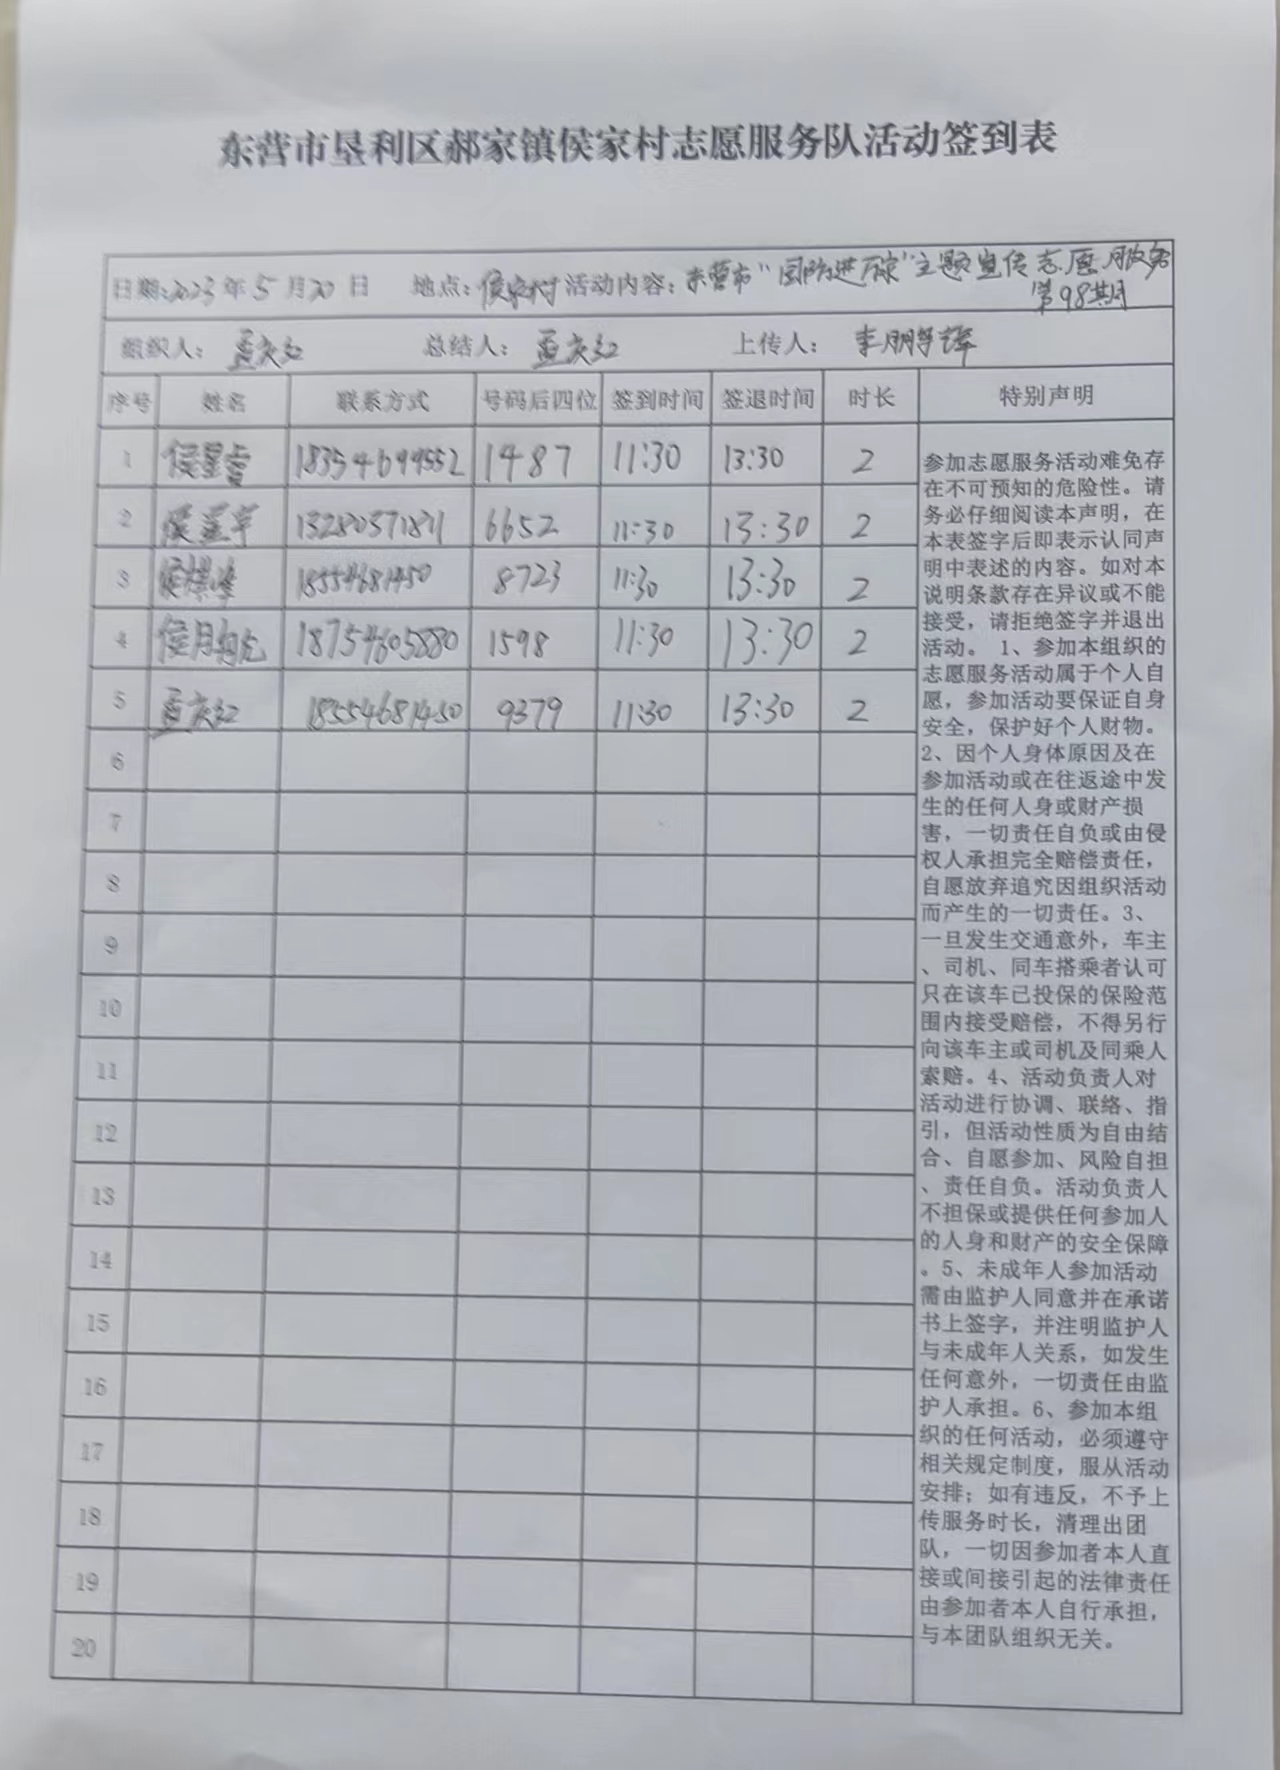 东营市垦利区郝家镇侯家村志愿服务队活动签到表
日期:2023年5月20日 地点:侯家村 活动内容:东营市“国防进万家”主题宣传志愿服务
第98期
组织人: 孟庆红 总结人: 孟庆红 上传人: 李鹏
序号 姓名 联系方式 号码后四位 签到时间 签退时间 时长 特别声明
1 侯星睿 18354699552 1487 11:30 13:30 2
2 侯 13280371831 6652 11:30 13:30 2
3 侯 18554681450 8723 11:30 13:30 2
4 侯月 18754605880 1598 11:30 13:30 2
5 孟庆红 18554681450 9379 11:30 13:30 2
6
7
8
9
10
11
12
13
14
15
16
17
18
19
20
参加志愿服务活动难免存
在不可预知的危险性。请
务必仔细阅读本声明，在
本表签字后即表示认同声
明中表述的内容。如对本
说明条款存在异议或不能
接受，请拒绝签字并退出
活动。 1、参加本组织的
志愿服务活动属于个人自
愿，参加活动要保证自身
安全，保护好个人财物。
2、因个人身体原因及在
参加活动或在往返途中发
生的任何人身或财产损
害，一切责任自负或由侵
权人承担完全赔偿责任，
自愿放弃追究因组织活动
而产生的一切责任。3、
一旦发生交通意外，车主
、司机、同车搭乘者认可
只在该车已投保的保险范
围内接受赔偿，不得另行
向该车主或司机及同乘人
索赔。4、活动负责人对
活动进行协调、联络、指
引，但活动性质为自由结
合、自愿参加、风险自担
、责任自负。活动负责人
不担保或提供任何参加人
的人身和财产的安全保障
。5、未成年人参加活动
需由监护人同意并在承诺
书上签字，并注明监护人
与未成年人关系，如发生
任何意外，一切责任由监
护人承担。6、参加本组
织的任何活动，必须遵守
相关规定制度，服从活动
安排；如有违反，不予上
传服务时长，清理出团
队，一切因参加者本人直
接或间接引起的法律责任
由参加者本人自行承担，
与本团队组织无关。